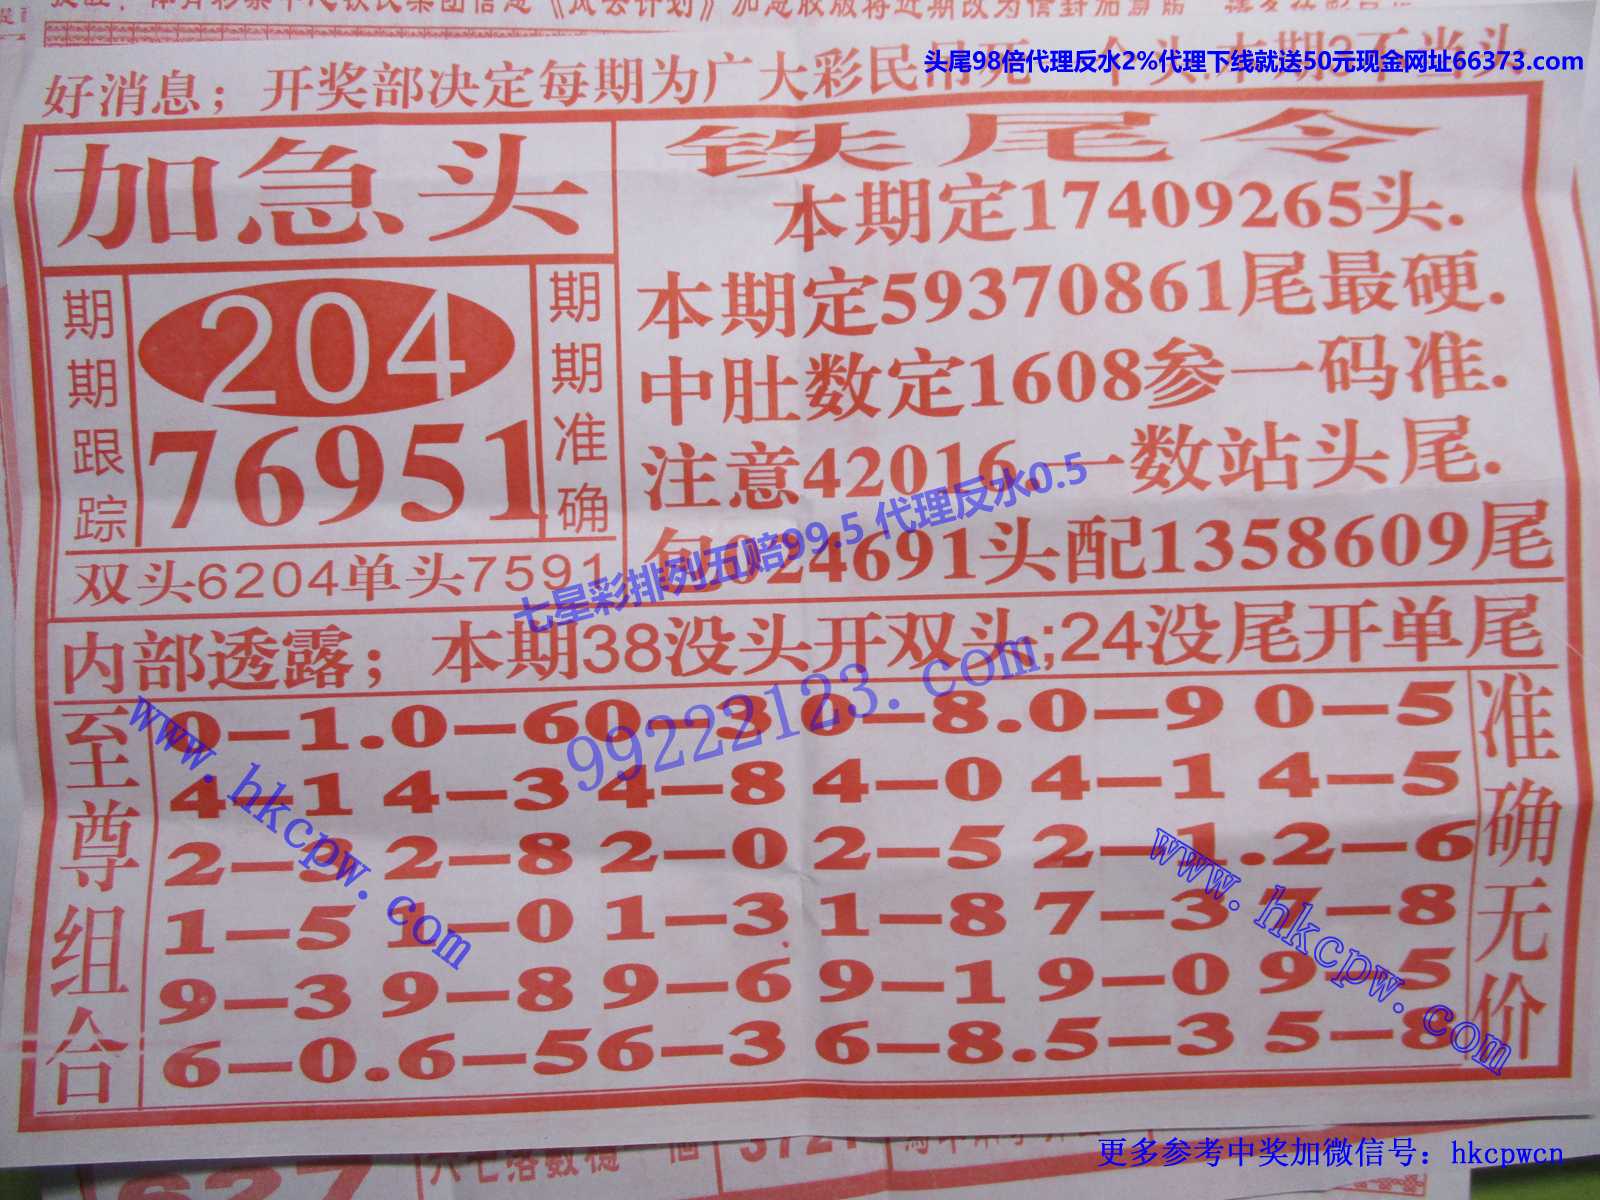 头尾98倍代理反水2%代理下线就送50元现金网址66373.com
好消息；开奖部决定每期为广大彩民吊死一个头.本期3不当头
加急头
期期跟踪
204
76951
期期准确
双头6204单头7591
铁尾令
本期定17409265头.
本期定59370861尾最硬.
中肚数定1608参一码准.
注意42016.一数站头尾.
包024691头配1358609尾
七星彩排列五赔99.5 代理反水0.5
内部透露；本期38没头开双头;24没尾开单尾
99222123.com
至尊组合
0—1.0—6 0—3 0—8.0—9 0—5
4—1 4—3 4—8 4—0 4—1 4—5
2—3 2—8 2—0 2—5 2—1.2—6
1—5 1—0 1—3 1—8 7—3 7—8
9—3 9—8 9—6 9—1 9—0 9—5
6—0.6—5 6—3 6—8.5—3 5—8
准确无价
www.hkcpw.com
www.hkcpw.com
更多参考中奖加微信号：hkcpwcn